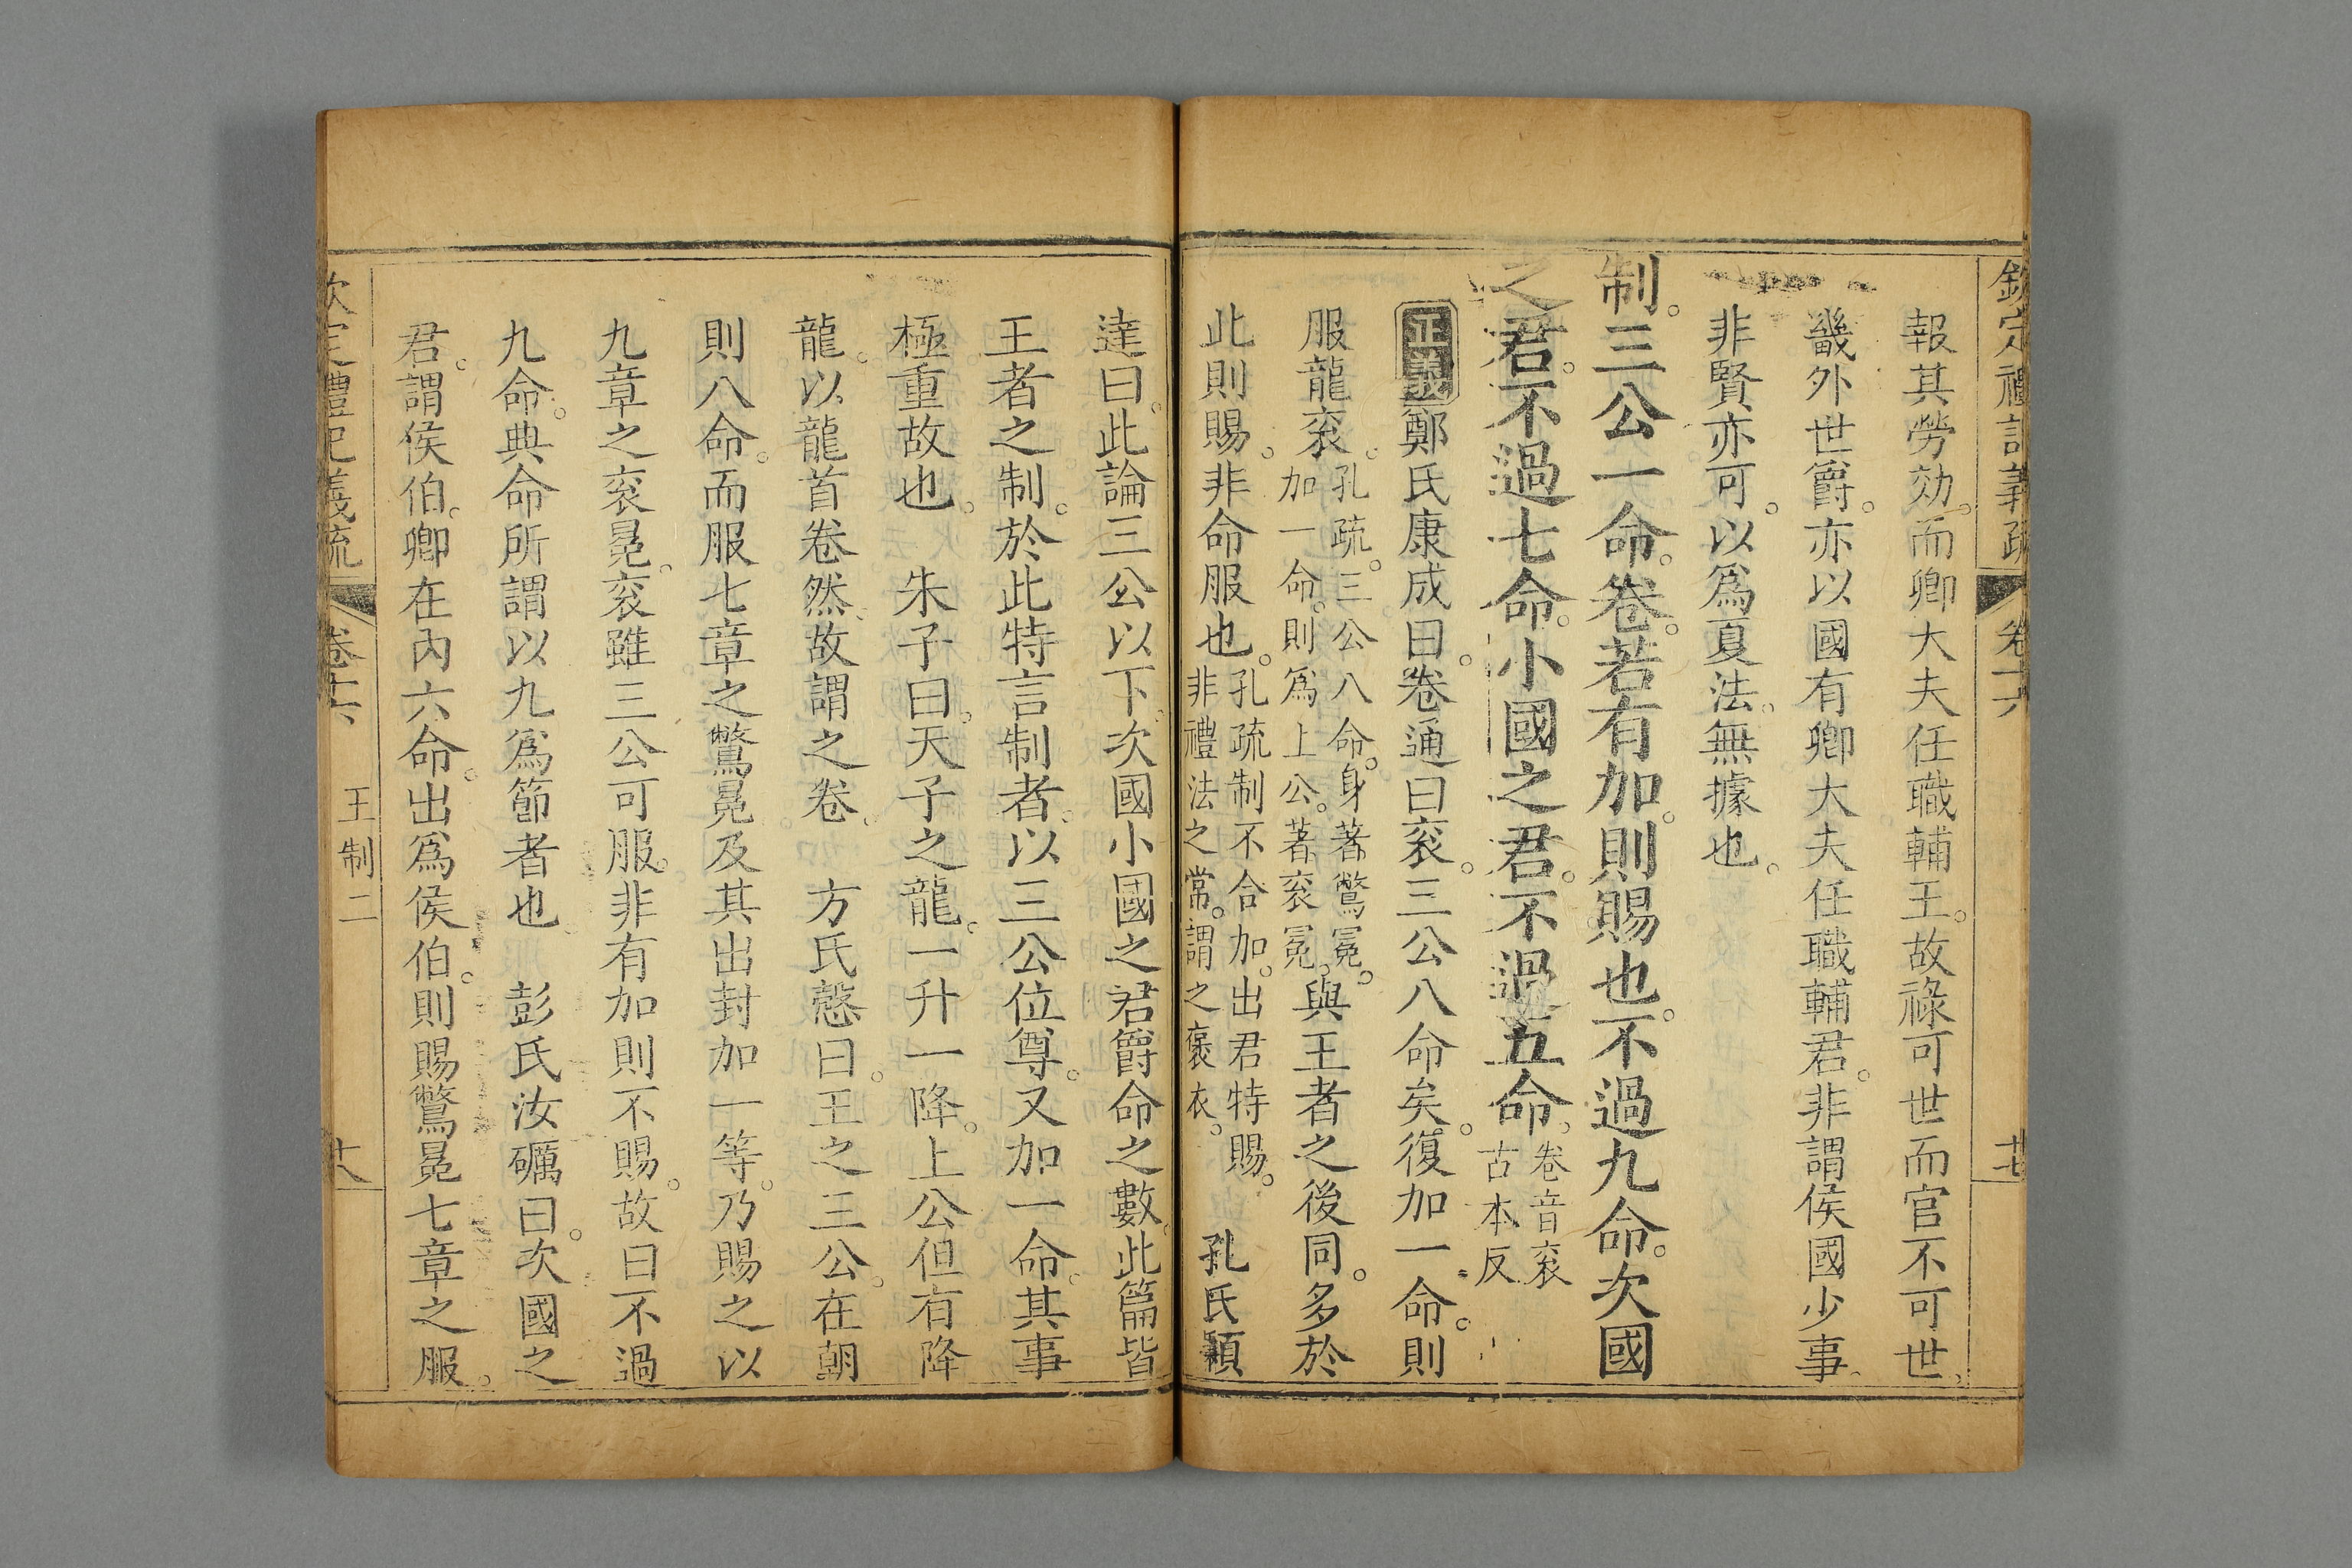 欽定禮記義疏 卷十六 十七
報其勞効。而卿大夫任職輔王。故祿可世而官不可世、
畿外世爵。亦以國有卿大夫任職輔君。非謂侯國少事、
非賢亦可。以爲夏法。無據也。
制。三公一命。卷。若有加。則賜也。不過九命。次國
之君。不過七命。小國之君。不過五命、卷音衮
古本反
正義鄭氏康成曰。卷通曰衮。三公八命矣。復加一命。則
服龍衮。孔疏。三公八命。身著鷩冕。
加一命。則爲上公。著衮冕。與王者之後同。多於
此則賜。非命服也。孔疏制不合加。出君特賜。
非禮法之常。謂之褒衣。 孔氏穎
達曰。此論三公以下、次國小國之君爵命之數。此篇皆
王者之制。於此特言制者。以三公位尊。又加一命。其事
極重故也。 朱子曰。天子之龍。一升一降。上公但有降
龍。以龍首卷然、故謂之卷。 方氏慤曰。王之三公。在朝
則八命。而服七章之鷩冕及其出封加一等。乃賜之以
九章之衮冕。衮雖三公可服。非有加則不賜。故曰不過
九命。典命所謂以九爲節者也。 彭氏汝礪曰。次國之
君。謂侯伯。卿在內六命。出爲侯伯。則賜鷩冕七章之服。
欽定禮記義疏 卷十六 王制二 十八